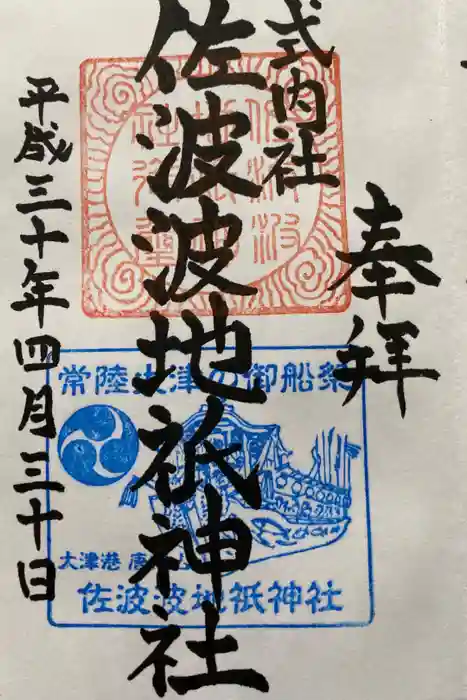 奉拝
式内社
佐波波地祇神社
平成三十年四月三十日
常陸大津の御船祭
大津港 唐
佐波波地祇神社